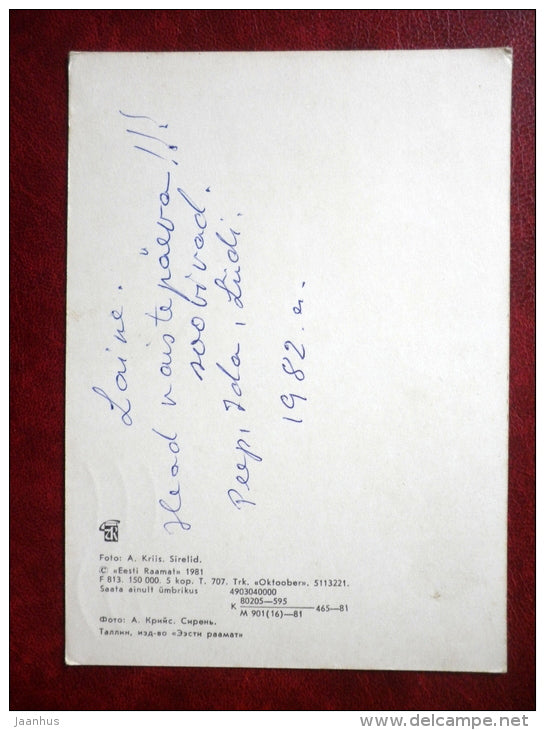 Laine.
Head naistepäeva!!!
soovivad.
Peep, Ida, Lüdi.
1982.a.
Foto: A. Kriis. Sirelid.
© «Eesti Raamat» 1981
F 813. 150 000. 5 kop. T. 707. Trk. «Oktoober». 5113221.
Saata ainult ümbrikus 4903040000
К 80205—595 465—81
М 901(16)—81
Фото: А. Крийс. Сирень.
Таллин, изд-во «Ээсти раамат»
jaanhus
www.delcampe.net